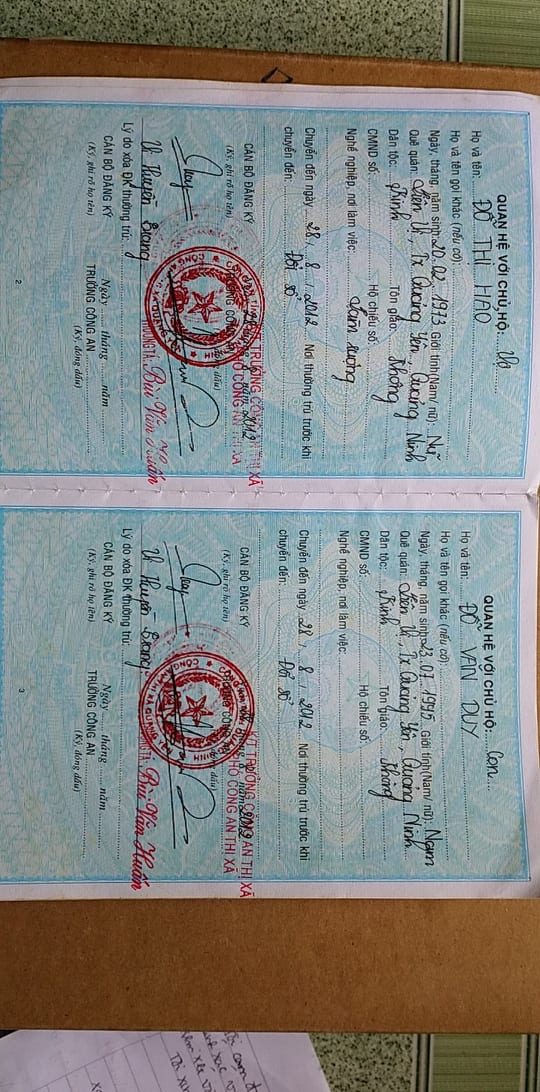 QUAN HỆ VỚI CHỦ HỘ: Vợ
Họ và tên: ĐỖ THỊ HÀO
Họ và tên gọi khác (nếu có):
Ngày, tháng, năm sinh: 20.02.1973 Giới tính (Nam/ nữ): Nữ
Quê quán: Liên Vị, Tx Quảng Yên, Quảng Ninh
Dân tộc: Kinh Tôn giáo: Không
CMND số: Hộ chiếu số:
Nghề nghiệp, nơi làm việc: Làm ruộng
Chuyển đến ngày 28 / 8 / 2012 Nơi thường trú trước khi
chuyển đến: Đổi sổ
CÁN BỘ ĐĂNG KÝ
(Ký, ghi rõ họ tên)
TRƯỞNG CÔNG AN THỊ XÃ
Bùi Văn Huấn
Lý do xóa ĐK thường trú:
CÁN BỘ ĐĂNG KÝ
(Ký, ghi rõ họ tên)
Ngày ..... tháng ..... năm
TRƯỞNG CÔNG AN
(Ký, đóng dấu)
2
QUAN HỆ VỚI CHỦ HỘ: Con
Họ và tên: ĐỖ VĂN DUY
Họ và tên gọi khác (nếu có):
Ngày, tháng, năm sinh: 23.07.1995 Giới tính (Nam/ nữ): Nam
Quê quán: Liên Vị, Tx Quảng Yên, Quảng Ninh
Dân tộc: Kinh Tôn giáo: Không
CMND số: Hộ chiếu số:
Nghề nghiệp, nơi làm việc:
Chuyển đến ngày 28 / 8 / 2012 Nơi thường trú trước khi
chuyển đến: Đổi sổ
CÁN BỘ ĐĂNG KÝ
(Ký, ghi rõ họ tên)
K/T TRƯỞNG CÔNG AN THỊ XÃ
PHÓ CÔNG AN THỊ XÃ
Bùi Văn Huấn
Lý do xóa ĐK thường trú:
CÁN BỘ ĐĂNG KÝ
(Ký, ghi rõ họ tên)
Ngày ..... tháng ..... năm
TRƯỞNG CÔNG AN
(Ký, đóng dấu)
3